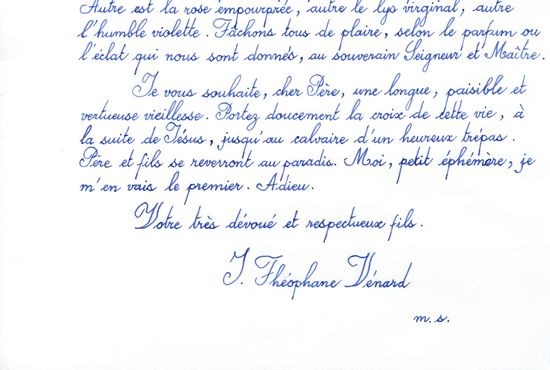 Autre est la rose empourprée, autre le lys virginal, autre
l'humble violette. Tâchons tous de plaire, selon le parfum ou
l'éclat qui nous sont donnés, au souverain Seigneur et Maître.
Je vous souhaite, cher Père, une longue, paisible et
vertueuse vieillesse. Portez doucement la croix de cette vie, à
la suite de Jésus, jusqu'au calvaire d'un heureux trépas.
Père et fils se reverront au paradis. Moi, petit éphémère, je
m'en vais le premier. Adieu.
Votre très dévoué et respectueux fils.
J. Théophane Vénard
m.s.